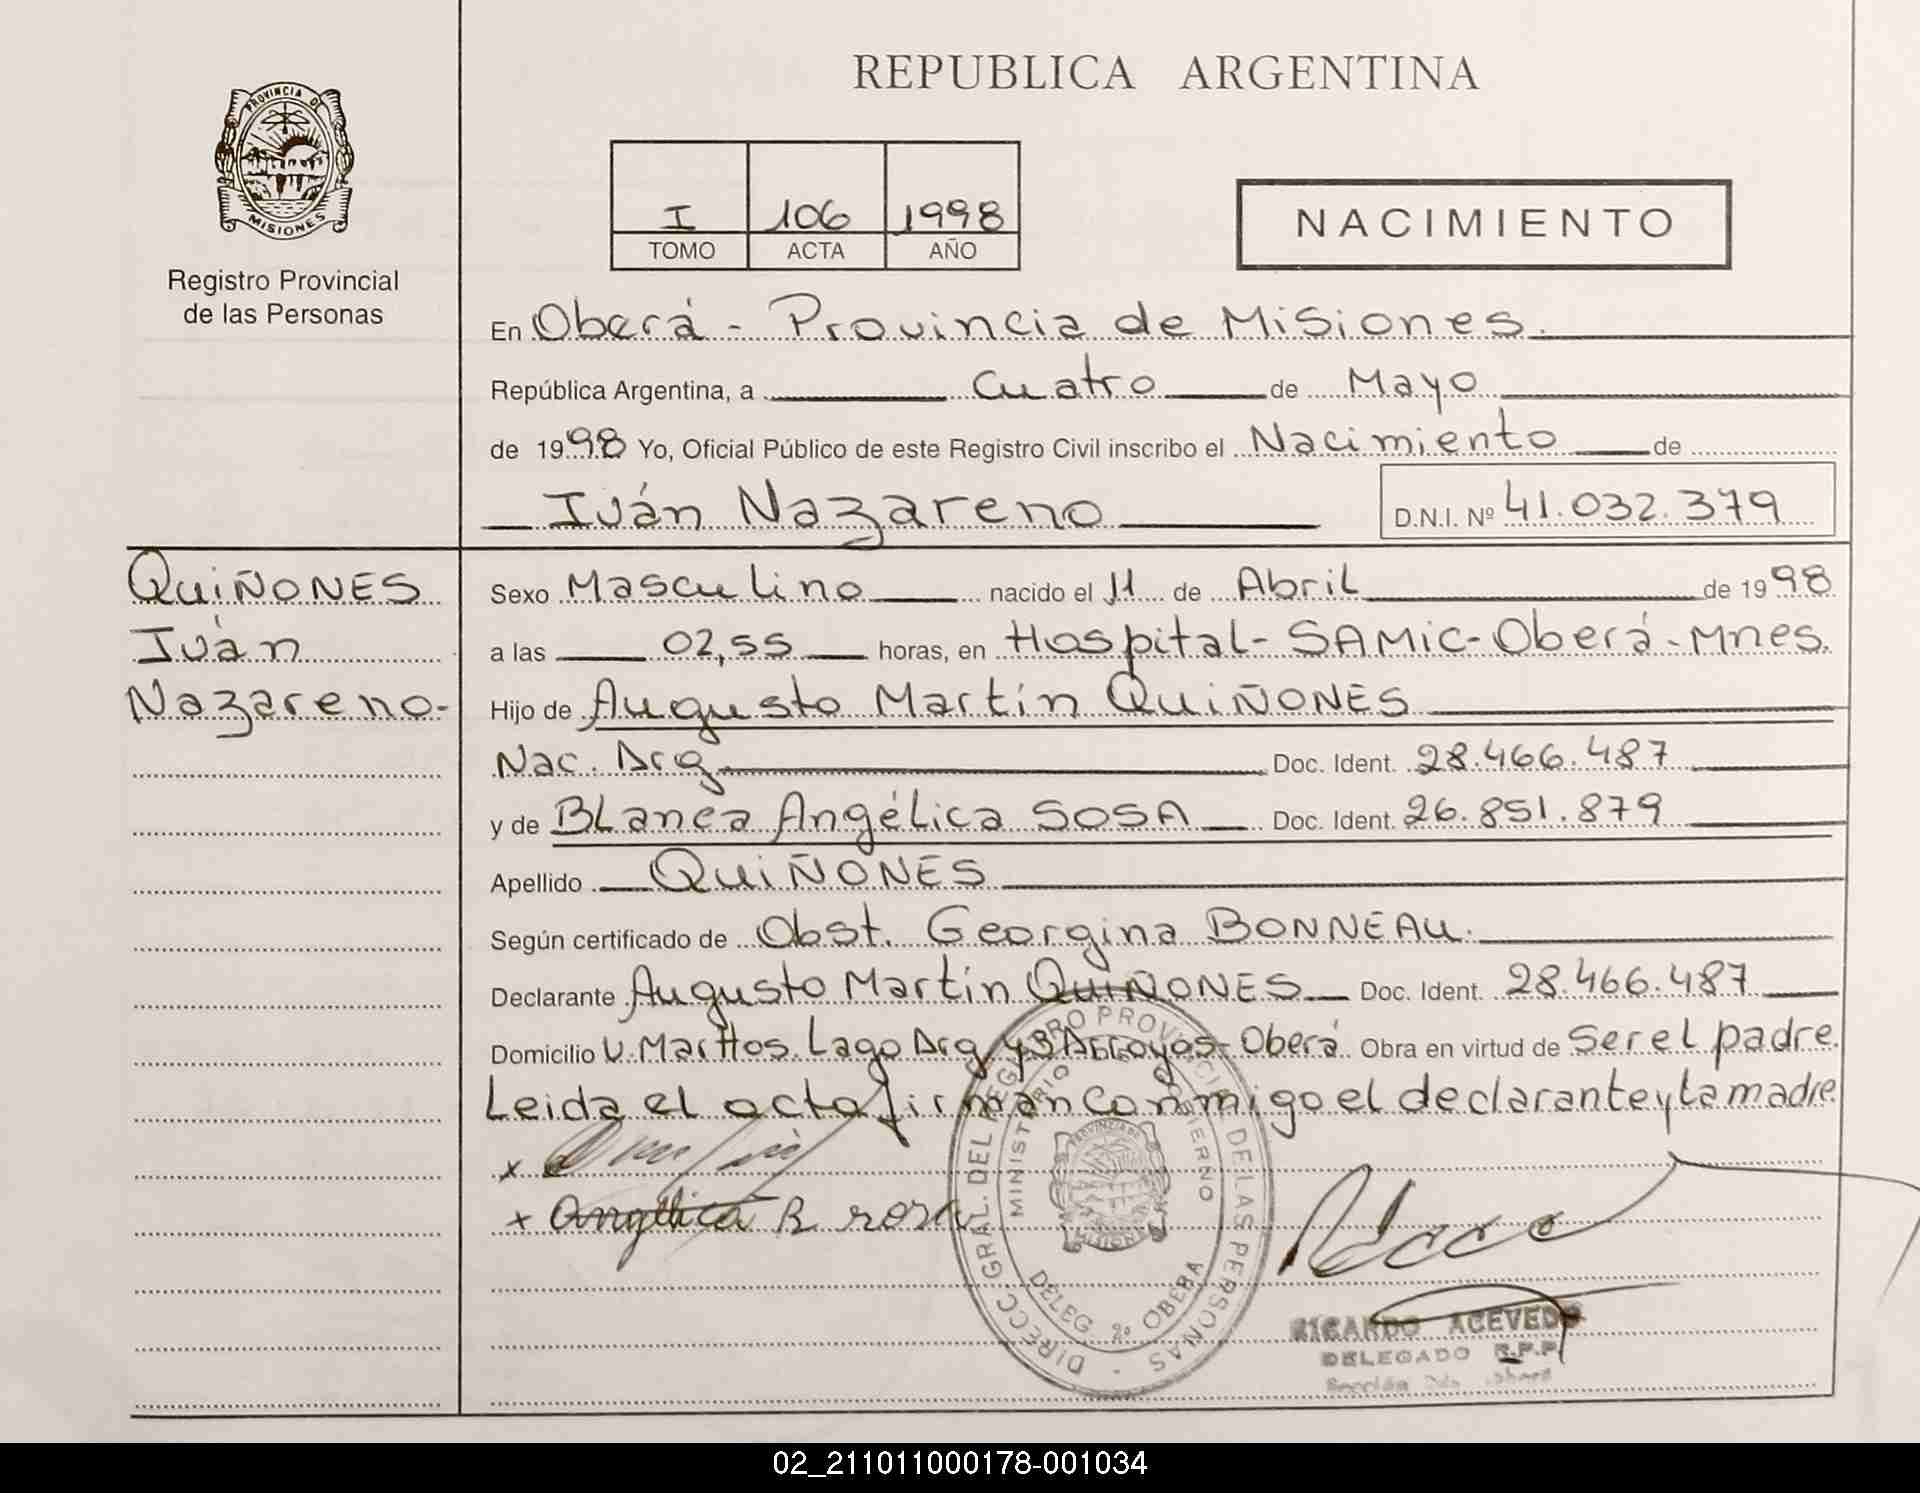 REPUBLICA ARGENTINA
PROVINCIA DE
MISIONES
Registro Provincial
de las Personas
I 106 1998
TOMO ACTA AÑO
NACIMIENTO
En Oberá - Provincia de Misiones.
República Argentina, a Cuatro de Mayo
de 1998 Yo, Oficial Público de este Registro Civil inscribo el Nacimiento de
Iván Nazareno D.N.I. Nº 41.032.379
QUIÑONES
Iván
Nazareno-
Sexo Masculino nacido el 11 de Abril de 1998
a las 02,55 horas, en Hospital-SAMIC-Oberá-Mnes.
Hijo de Augusto Martín QUIÑONES
Nac. Arg Doc. Ident. 28.466.487
y de Blanca Angélica SOSA Doc. Ident. 26.851.879
Apellido QUIÑONES
Según certificado de Obst. Georgina BONNEAU.
Declarante Augusto Martín QUIÑONES Doc. Ident. 28.466.487
Domicilio V. Marttos. Lago Arg y 3 Arroyos-Oberá Obra en virtud de Ser el padre.
Leida el acta firman conmigo el declarante y la madre
x
x Angélica B
DIRECC. GRAL. DEL REGISTRO PROVINCIAL DE LAS PERSONAS -
MINISTERIO DE GOBIERNO
PROVINCIA DE
MISIONES
DELEG. 2º OBERA
RICARDO ACEVEDO
DELEGADO R.P.P.
Sección 2da. Oberá
02_211011000178-001034